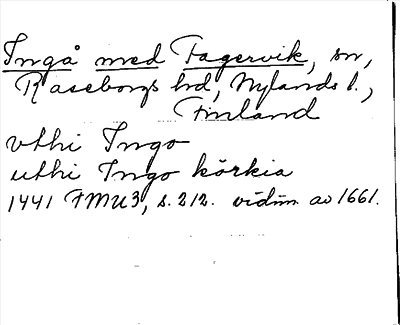 Ingå med Fagervik, sn,
Raseborgs hd, Nylands l.,
Finland
vthi Ingo
uthi Ingo körkia
1441 FMU3, s. 212. vidim av 1661.